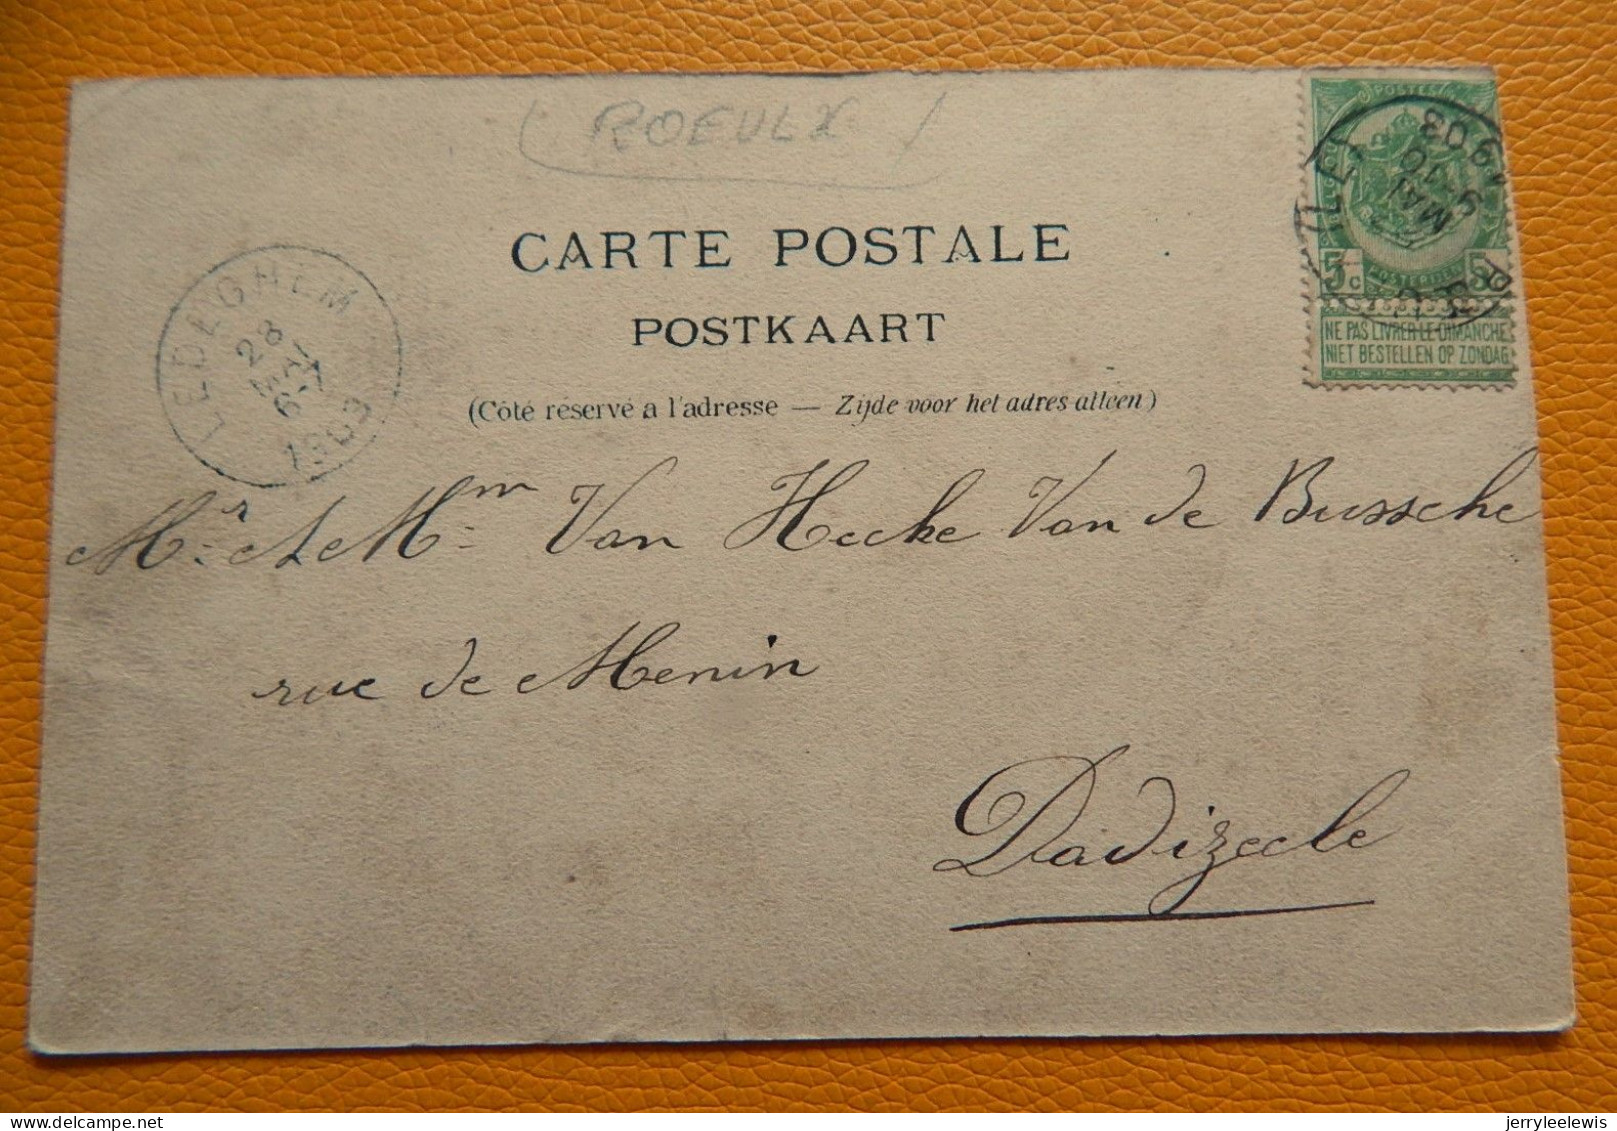 ( ROEULX )
CARTE POSTALE
POSTKAART
(Côté réservé a l'adresse — Zijde voor het adres alleen)
LEDEGHEM
28
MAI
6-7
1903
POSTES
5 MAI
10
1903
5 c POSTERIJEN 5
NE PAS LIVRER LE DIMANCHE
NIET BESTELLEN OP ZONDAG
Mr & Mm Van Hecke Van de Bussche
rue de Menin
Dadizeele
Delcampe.net
jerryleelewis